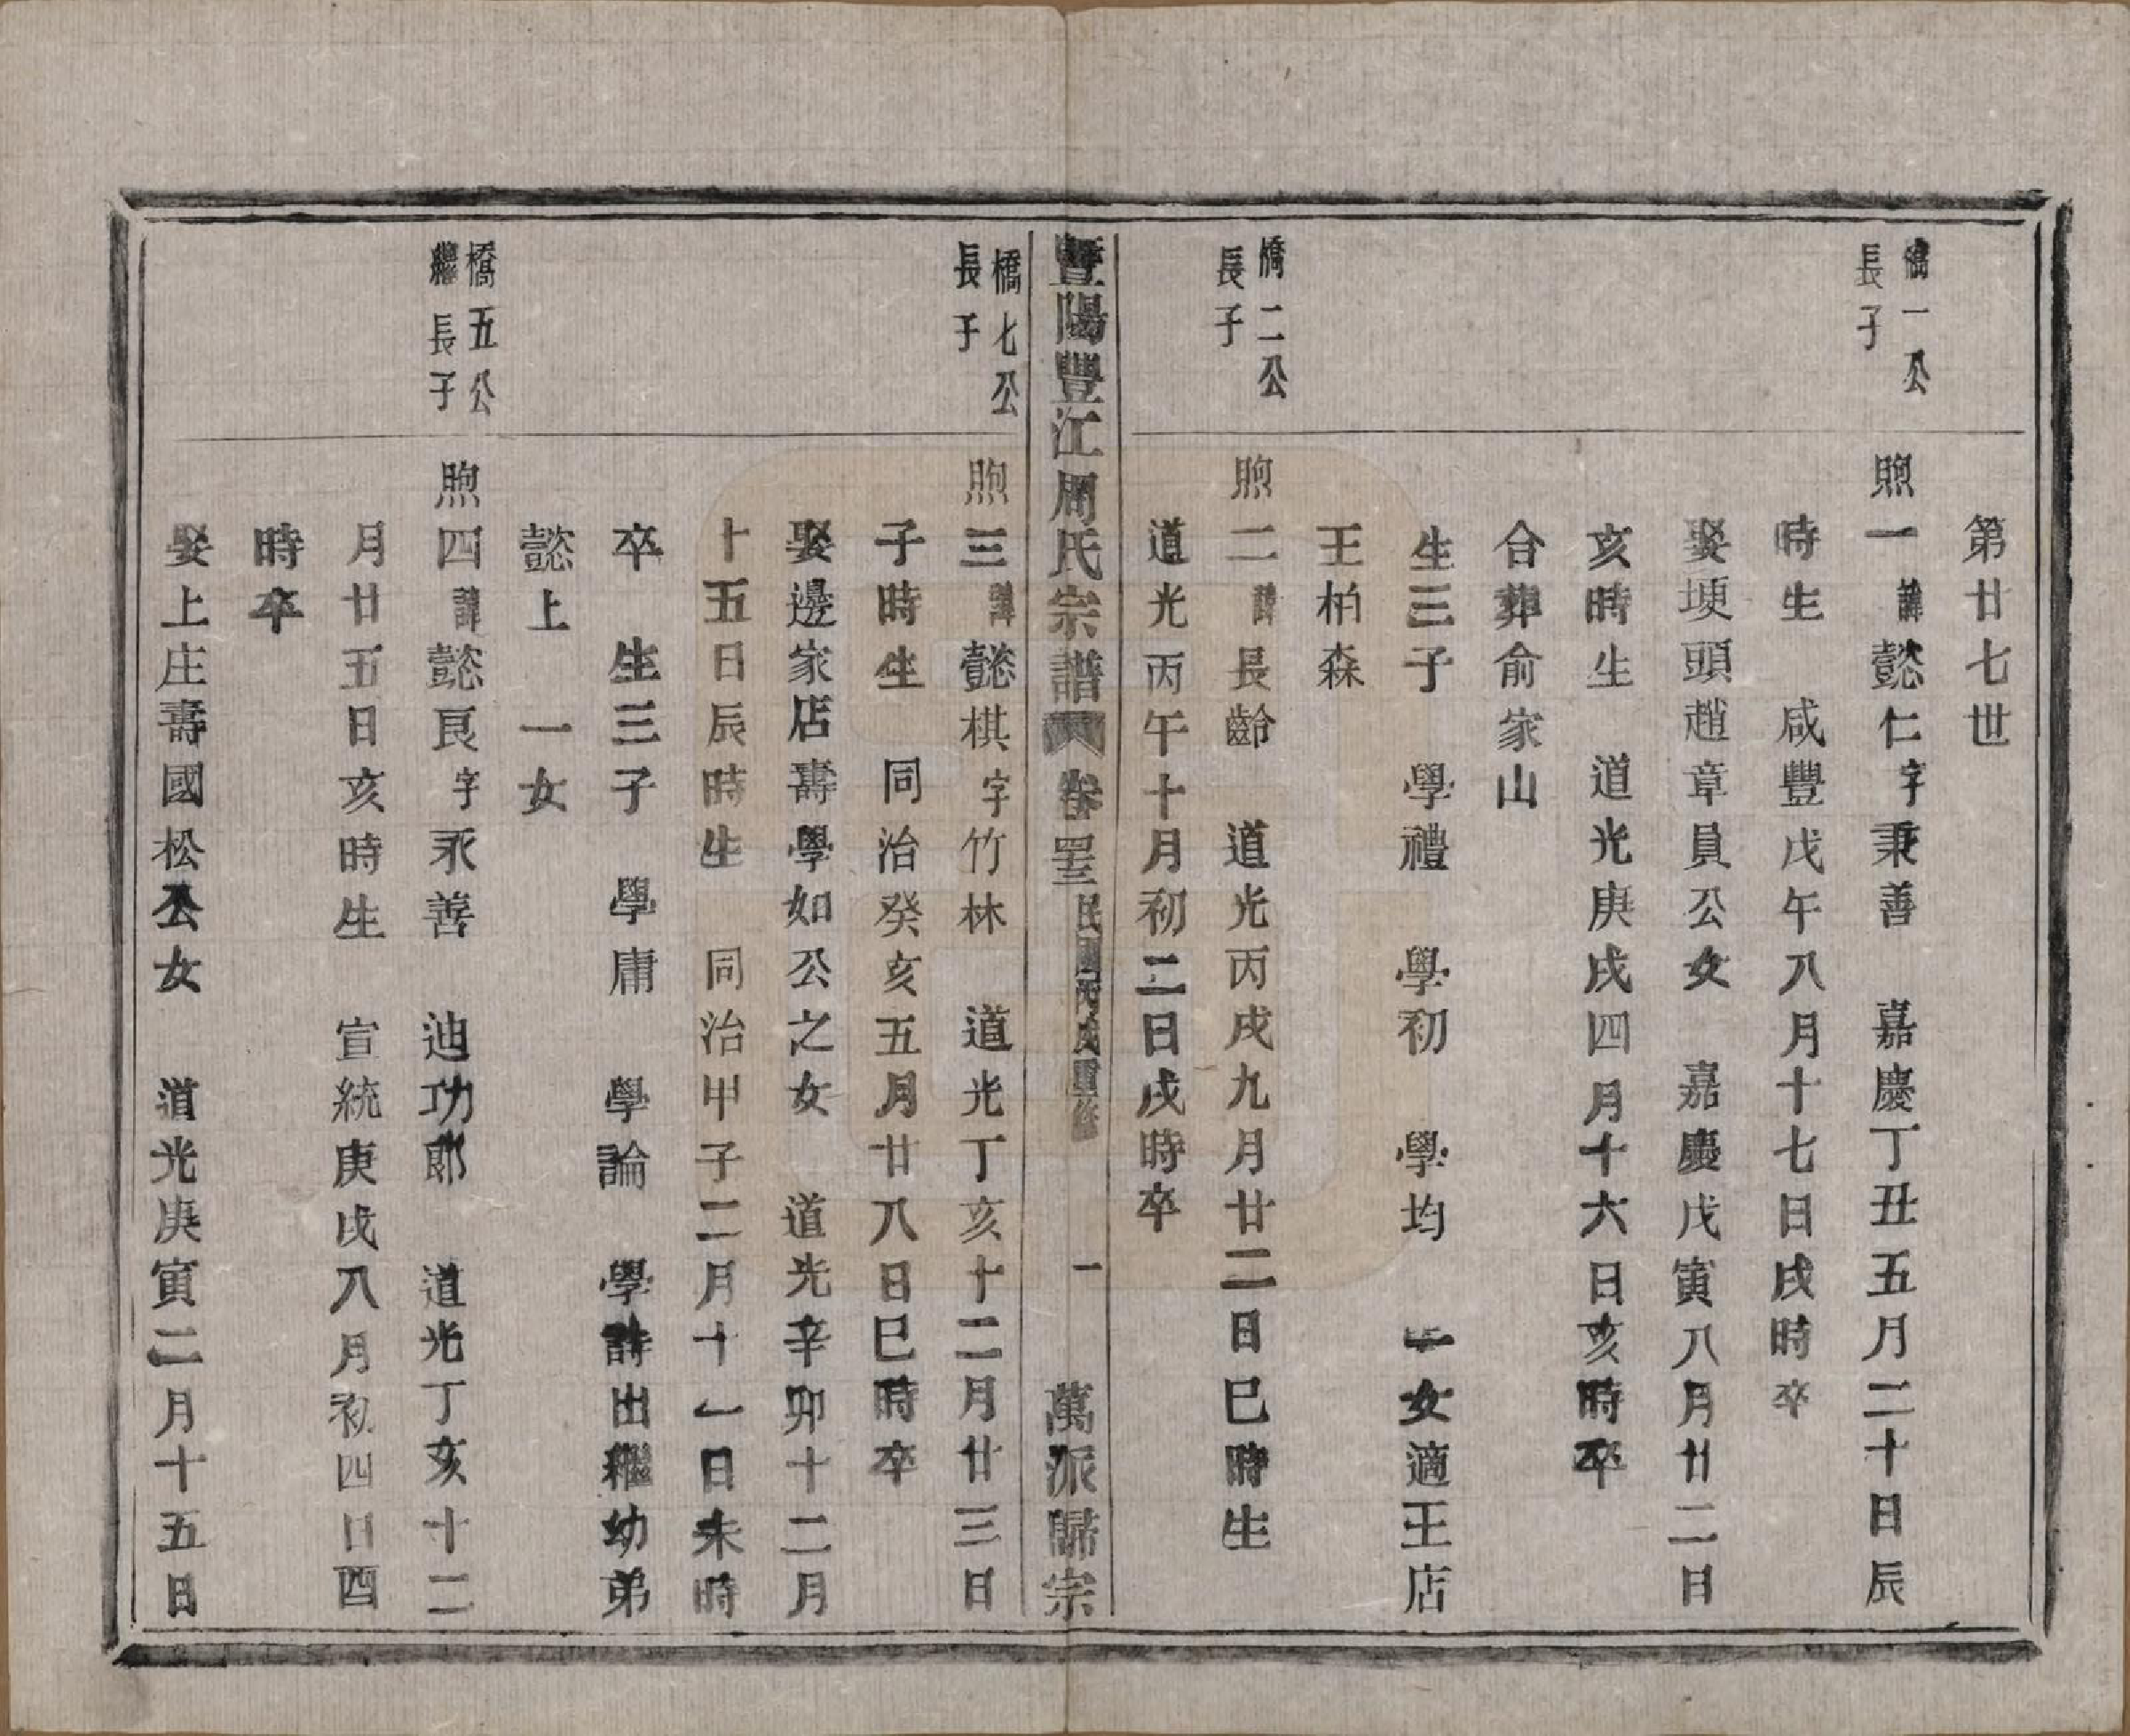 第廿七世
橋一公
長子
煦一諱懿仁字秉善　嘉慶丁丑五月二十日辰
時生　咸豐戊午八月十七日戌時卒
娶埂頭趙章員公女　嘉慶戊寅八月廿二日
亥時生　道光庚戌四月十六日亥時卒
合葬俞家山
生三子　學禮　學初　學均　一女適王店
王柏森
橋二公
長子
煦二諱長齡　道光丙戌九月廿二日巳時生
道光丙午十月初二日戌時卒
暨陽豐江周氏宗譜　卷四三　民國丙戌重修　一　萬派歸宗
橋七公
長子
煦三諱懿棋字竹林　道光丁亥十二月廿三日
子時生　同治癸亥五月廿八日巳時卒
娶邊家店壽學如公之女　道光辛卯十二月
十五日辰時生　同治甲子二月十一日未時
卒　生三子　學庸　學論　學詩出繼幼弟
懿上　一女
橋五公
繼長子
煦四諱懿良字永善　迪功郎　道光丁亥十二
月廿五日亥時生　宣統庚戌八月初四日酉
時卒
娶上庄壽國松公女　道光庚寅二月十五日